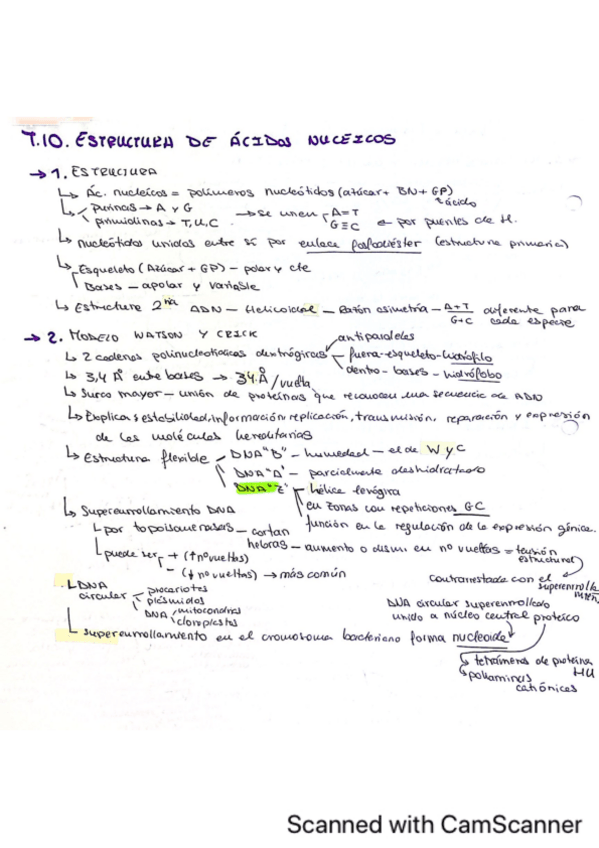 T.10. ESTRUCTURA DE ÁCIDOS NUCEICOS
→ 1. ESTRUCTURA
↳ Ác. nucleicos = polímeros nucleótidos (azúcar + BN + GP)
↳ purinas → A y G → se unen A=T ácido
pirimidinas → T, U, C G≡C ← por puentes de H.
↳ Nucleótidos unidos entre sí por enlace fosfodiéster (estructura primaria)
↳ Esqueleto (Azúcar + GP) - polar y cte
Bases - apolar y variable
↳ Estructure 2ria ADN - Helicoidal - Razón asimetría - A+T/G+C diferente para cada especie
→ 2. MODELO WATSON Y CRICK
↳ 2 cadenas polinucleotídicas dextrógiras antiparalelas
fuera - esqueleto - hidrófilo
dentro - bases - hidrófobo
↳ 3,4 Å entre bases → 34 Å/vuelta
↳ Surco mayor - unión de proteínas que reconocen una secuencia de ADN
↳ Explica: estabilidad, información, replicación, transmisión, reparación y expresión
de las moléculas hereditarias
↳ Estructura flexible DNA "B" - humedad - el de W y C
DNA "A" - parcialmente deshidratado
DNA "Z" hélice levógira
en zonas con repeticiones GC
función en la regulación de la expresión génica.
↳ Superenrollamiento DNA
↳ por topoisomerasas - cortan hebras - aumento o dismi en nº vueltas = tensión estructural
↳ puede ser + (↑ nº vueltas)
- (↓ nº vueltas) → más común
contrarrestada con el superenrolla
↳ DNA circular procariotas
plásmidos
DNA mitocondrias
cloroplastos
DNA circular superenrollado
unido a núcleo central proteico
↳ superenrollamiento en el cromosoma bacteriano forma nucleoide
↳ tetrámeros de proteína HU
↳ poliaminas catiónicas
Scanned with CamScanner